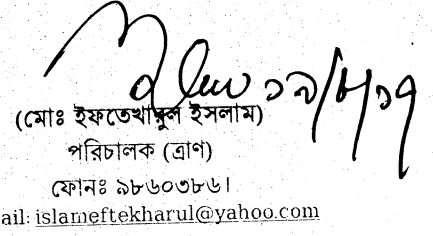 ১৯/৮/১৭
(মোঃ ইফতেখারুল ইসলাম)
পরিচালক (ত্রাণ)
ফোনঃ ৯৮৬০৩৮৬।
ail: islameftekharul@yahoo.com